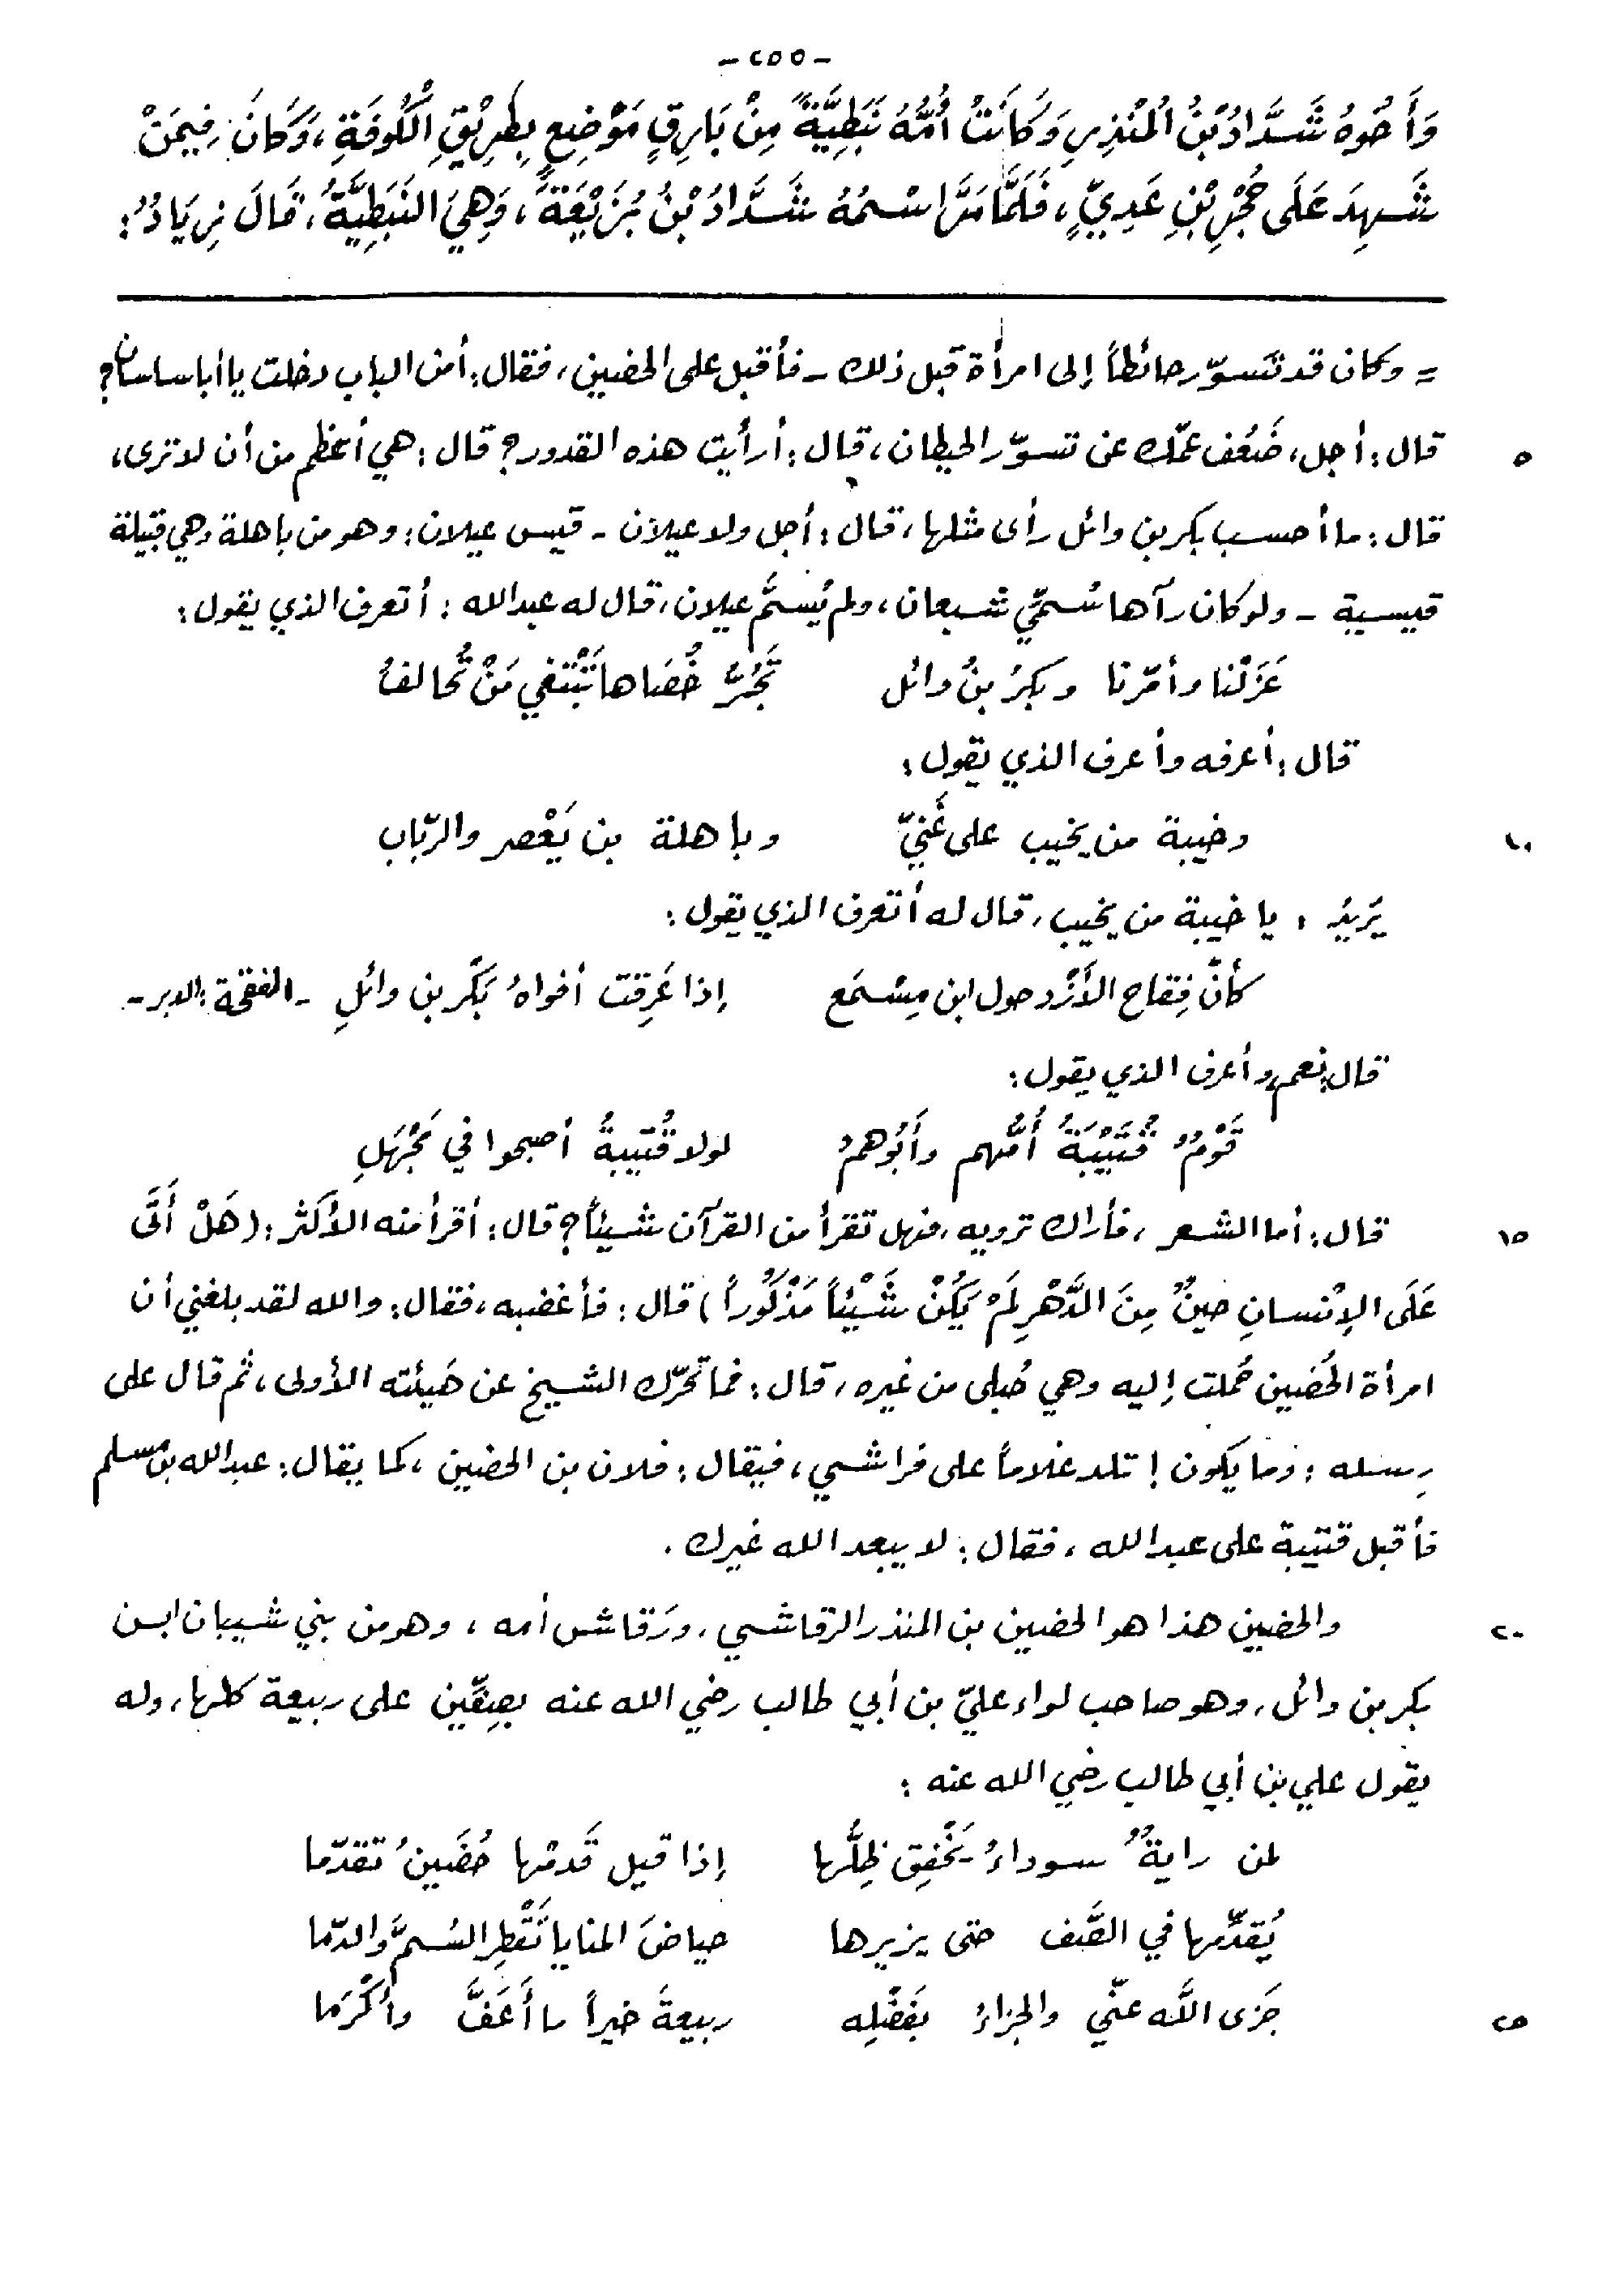 - ٢٥٥ -
وَأَخُوهُ شَدَّادُ بْنُ المُنْذِرِ وَكَانَتْ أُمُّهُ نَبَطِيَّةً مِنْ بَارِقٍ مَوْضِعٍ بِطَرِيْقِ الْكُوفَةِ، وَكَانَ فِيمَنْ
شَهِدَ عَلَى حُجْرِ بْنِ عَدِيٍّ، فَلَمَّا مَرَّ اسْمُهُ شَدَّادُ بْنُ بُزَيْعَةَ، وَهِيَ النَبَطِيَّةُ، قَالَ زِيَادٌ:
= وكان قد تَسوّر حائطاً إلى امرأة قبل ذلك - فأقبل على الحضين، فقال: أمن الباب دخلت يا أبا ساسان؟
٥ قال: أجل، ضَعُف عمّك عن تسوّر الحيطان، قال: أرأيت هذه القدور؟ قال: هي أعظم من أن لا ترى،
قال: ما أحسب بكر بن وائل رأى مثلها، قال: أجل ولا عيلان - قيس عيلان: وهو من باهلة وهي قبيلة
قيسية - ولو كان رآها سُمِّي شبعان، ولم يُسمَّ عيلان، قال له عبد الله: أتعرف الذي يقول:
عَزَلْنا وأمّرنا وبكرُ بنُ وائل تَجُرُّ خُصَاها تَبْتَغي مَنْ تُحالفُ
قال: أعرفه وأعرف الذي يقول:
١٠ وخيبة من يخيب على غَنيّ وباهلة بن يَعْصر والرّباب
يَريدُ: يا خيبة من يخيب، قال له أتعرف الذي يقول:
كأنَّ فِقاح الأَزْد حول ابن مِسْمَع إذا عَرِقت أفواهُ بَكْر بن وائلِ - الفقحة: الدبر -
قال: نعم، وأعرف الذي يقول:
قَوْمٌ قُتَيْبَةُ أُمُّهم وأَبُوهمُ لولا قُتَيبةُ أصبحوا في مَجْهَلِ
١٥ قال: أما الشعر، فأراك ترويه، فهل تقرأ من القرآن شيئاً؟ قال: أقرأ منه الأكثر: (هَلْ أَتَى
عَلَى الإِنْسانِ حينٌ مِنَ الدَّهْرِ لَمْ يَكُنْ شَيْئاً مَذْكُوراً) قال: فأغضبه، فقال: والله لقد بلغني أن
امرأة الحُضَين حُملت إليه وهي حُبلى من غيره، قال: فما تحرّك الشيخ عن هَيئته الأولى، ثم قال على
رِسله: وما يكون! تلد غلاماً على فراشي، فيقال: فلان بن الحضين، كما يقال: عبد الله بن مسلم
فأقبل قتيبة على عبد الله، فقال: لا يبعد الله غيرك.
٢٠ والحضين هذا هو الحضين بن المنذر الرقاشي، ورَقاش أمه، وهو من بني شيبان ابن
بكر بن وائل، وهو صاحب لواء عليّ بن أبي طالب رضي الله عنه بصِفِّين على ربيعة كلها، وله
يقول علي بن أبي طالب رضي الله عنه:
لمن رايةٌ سوداءُ يَخْفِق ظِلُّها إذا قيل قَدمْها حُضَينُ تقدّما
يُقدِّمها في الصَّف حتى يزيرها حياضَ المنايا تَقْطِر السُمَّ والدّما
٢٥ جَزى اللَّه عنّي والجزاءُ بفَضْلِه ربيعةَ خيراً ما أَعَفَّ وأَكْرَما